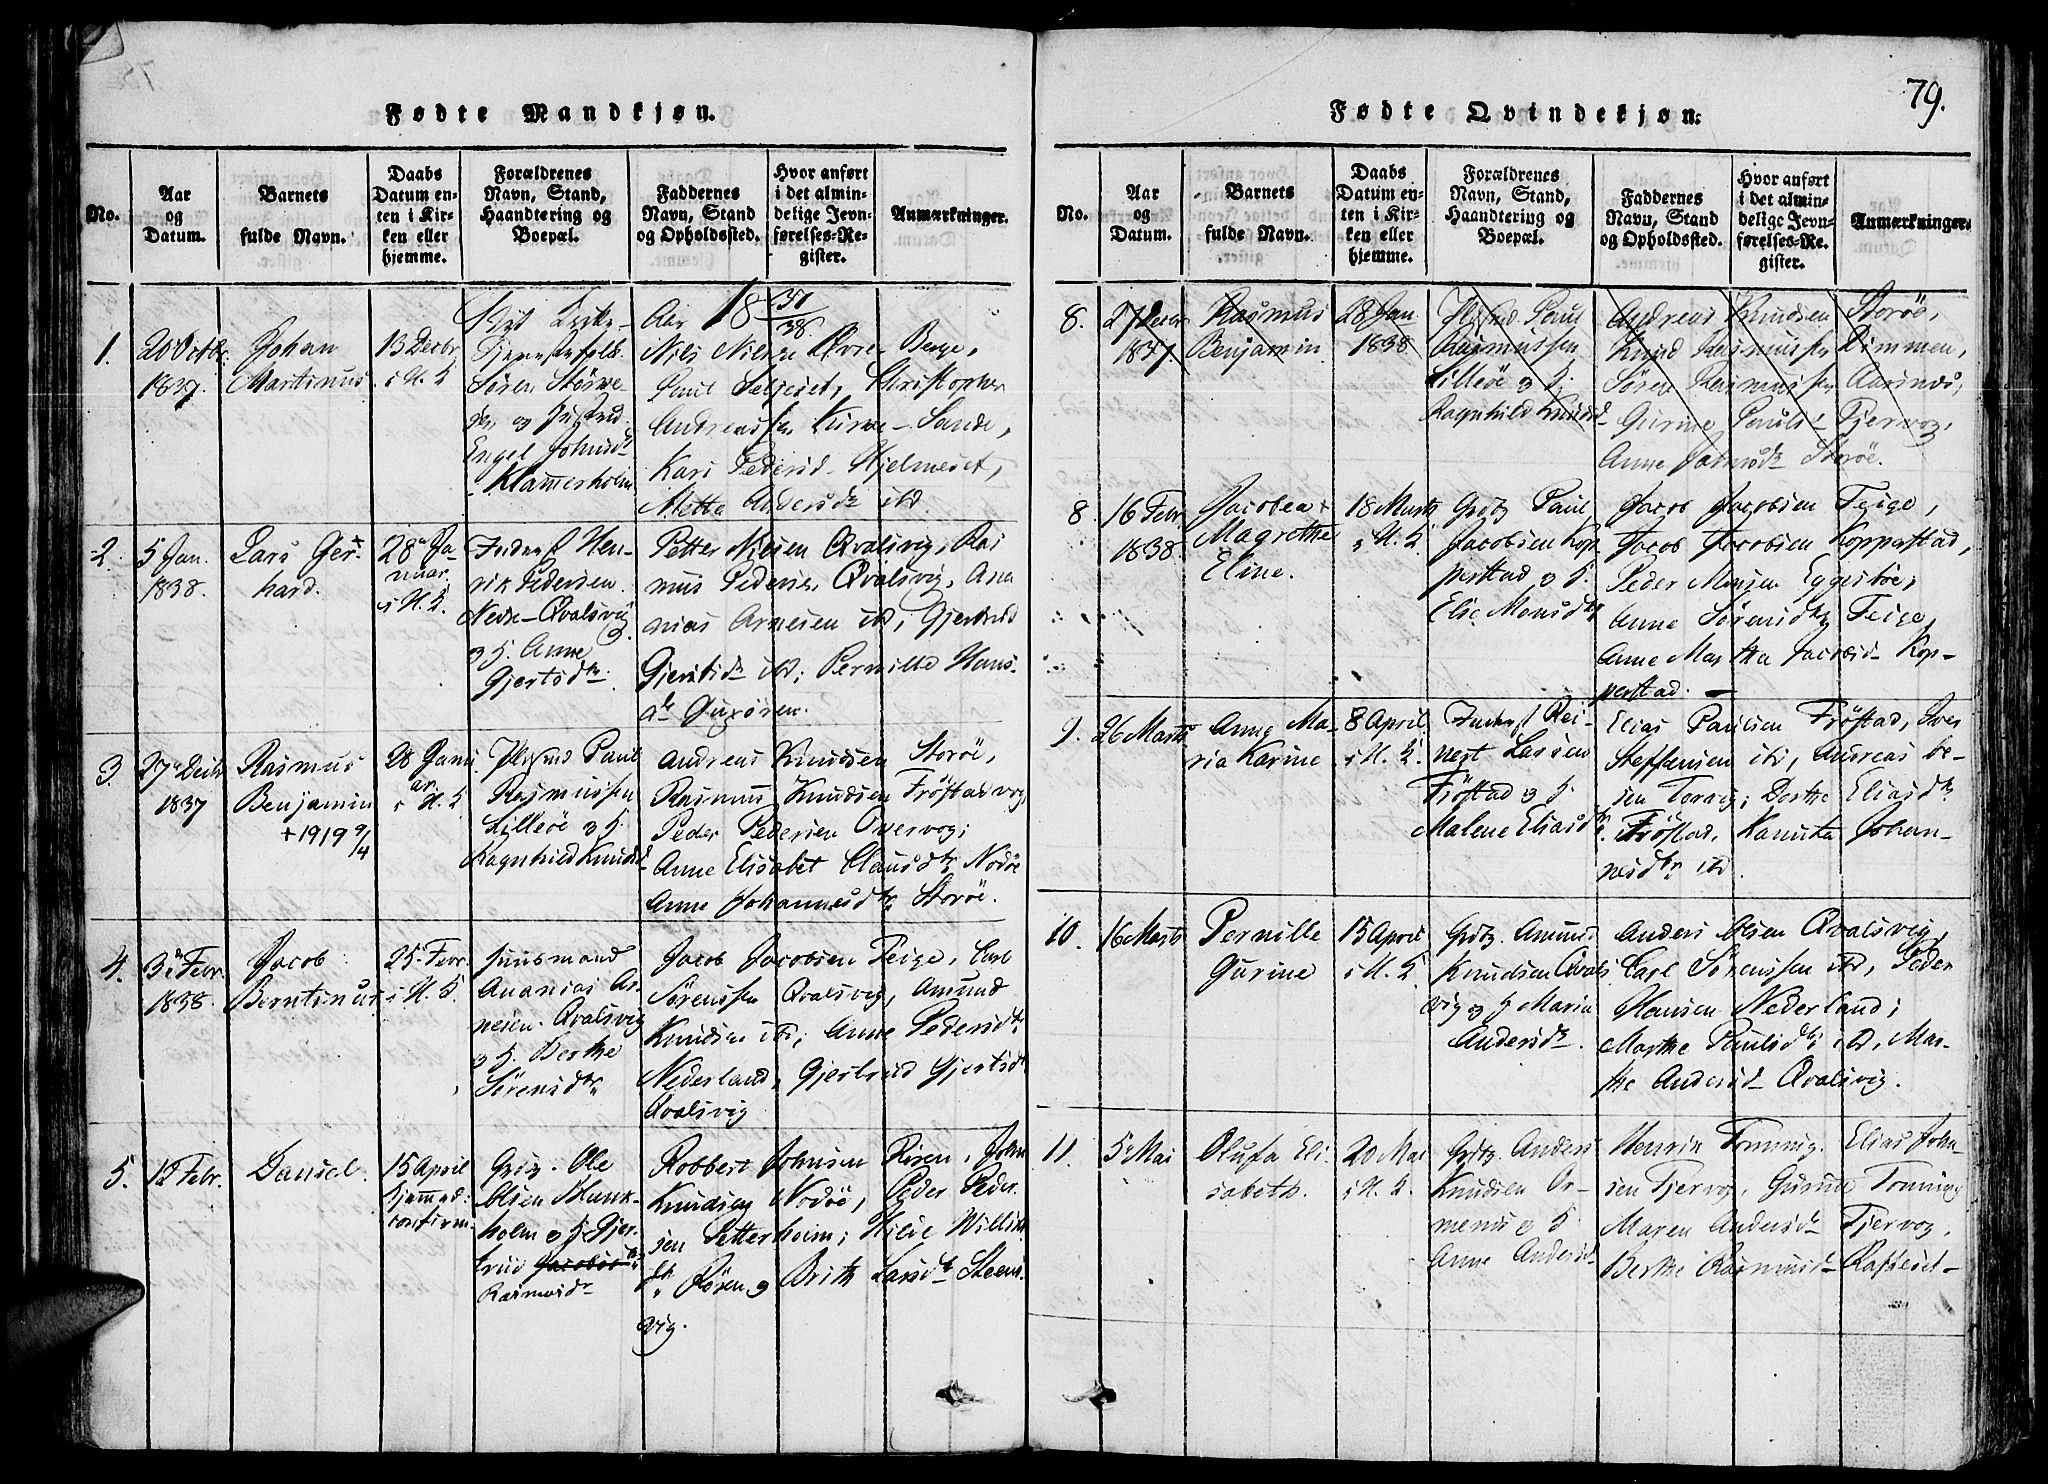 Fødte Mandkjøn.
No.
Aar
og
Datum.
Barnets
fulde Navn.
Daabs
Datum en-
ten i Kir-
ken eller
hjemme.
Forældrenes
Navn, Stand,
Haandtering og
Boepæl.
Faddernes
Navn, Stand
og Opholdssted.
Hvor anført
i det almin-
delige Jevn-
førelses-Re-
gister.
Anmærkninger.
Aar 18 37/38.
1.
20 Octbr.
1837.
Johan
Martinus
13 Decbr
i H. K.
Tjenestefolk
Søren
og
Engel Johnsd.
Klamerholm
Niels Nilsen Øvre-Berge,
Paul Seljeset, Christopher
Andreassen Kirve-Sande,
Kari Pedersd. Hjelmeset,
Mette Andersdr ibd.
2.
5 Jan.
1838.
Lars Ger-
hard.
28 Ja-
nuar
i H. K.
Inderst Hen-
rik Pedersen
Nedre-Qvalsvig
og H. Anne
Gjertsdtr
Petter Nilsen Qvalsvig, Ras
mus Pedersen Qvalsvig, Ana
nias Arnesen ibd, Gjertrud
Gjertsdr ibd; Pernille Hans-
dr
3.
27de Decbr
1837
Rasmus
Benjamin
+1919 9/4
28 Janu
ar.
i H. K.
Paul
Rasmussen
Lilleøe og H.
Ragnhild Knudsd-
Andreas Knudsen Storøe,
Rasmus Knudsen Frøstadvog
Peder Pedersen Overvog;
Anne Elisabet Clausdtr Nodøe
Anne Johannesdtr Storøe.
4.
3de Febr.
1838.
Jacob
Berntinus
25 Febr.
i H. K.
Huusmand
Ananias Ar
nesen Qvalsvig
og H. Berthe
Sørensdtr
Jacob Jacobsen Teige, Carl
Sørenssen Qvalsvig, Amund
Knudsen ibd, Anne Pedersdtr
Nederland, Gjertrud Gjertsdr
Qvalsvig
5.
12 Febr.
Daniel.
15 April
hjemmed:
confirm
Grbg. Ole
Olsen Munk-
holm og H. Gjer-
trud Jacobsdtr
Rasmusdr
Robbert Johnsen Røren, John
Knudsen Nodøe, Peder Peder
sen Petterheim; Hilde Willum
dtr Røren og Brith Larsdtr Steens
vig.
79.
Fødte Qvindekjøn.
No.
Aar
og
Datum.
Barnets
fulde Navn.
Daabs
Datum en-
ten i Kir-
ken eller
hjemme.
Forældrenes
Navn, Stand,
Haandtering og
Boepæl.
Faddernes
Navn, Stand
og Opholdssted.
Hvor anført
i det almin-
delige Jevn-
førelses-Re-
gister.
Anmærkninger.
8.
27 Decbr
1837
Rasmus
Benjamin
28 Jan
1838
Paul
Rasmussen
Lilleøe og H.
Ragnhild Knudsd-
Andreas Knudsen Storøe,
Knud Rasmussen Dimmen,
Søren Rasmussen Aarsnes,
Gurine Paulsd- Tjervog,
Anne Johnsdr Storøe.
8
16 Febr.
1838.
Jacobea
Magrethe
Eline.
18 Marts
i H. K.
Grbg Paul
Jacobsen Kop-
perstad og H.
Elie Monsdtr
Jacob Jacobsen Teige,
Jacob Jacobsen Kopperstad,
Peder Monsen Eggesbøe,
Anne Sørensdtr Teige,
Anne Martha Jacobsd- Kop-
perstad.
9.
26 Marts
Anne Ma-
ria Karine
8 April
i H. K.
Inderst Rei-
nert Larsen
Frøstad og H.
Malene Eliasdtr
Elias Paulsen Frøstad, Iver
Steffensen ibd, Andreas Be-
sen Torvig; Dorthe Eliasdtr
Frøstad, Kanuta Johan-
nesdtr ibd.
10.
16 Marts
Pernille
Gurine
15 April
i H. K.
Grbg. Amund
Knudsen Qvals
vig og H Maria
Andersdr.
Anders Olsen Qvalsvig,
Carl Sørenssen ibd, Peder
Hansen Nederland;
Marthe Paulsdtr ibd, Mar-
the Andersd- Qvalsvig.
11.
5 Mai
Olufa Eli-
sabeth.
20 Mai
i H. K.
Grbg. Anders
Knudsen Or-
menes og H.
Anne Andersd-
Henrik Tonning. Elias John-
sen Tjervog, Gurine Tonning
Maren Andersdr Tjervog,
Berthe Rasmusd- Rafteset-